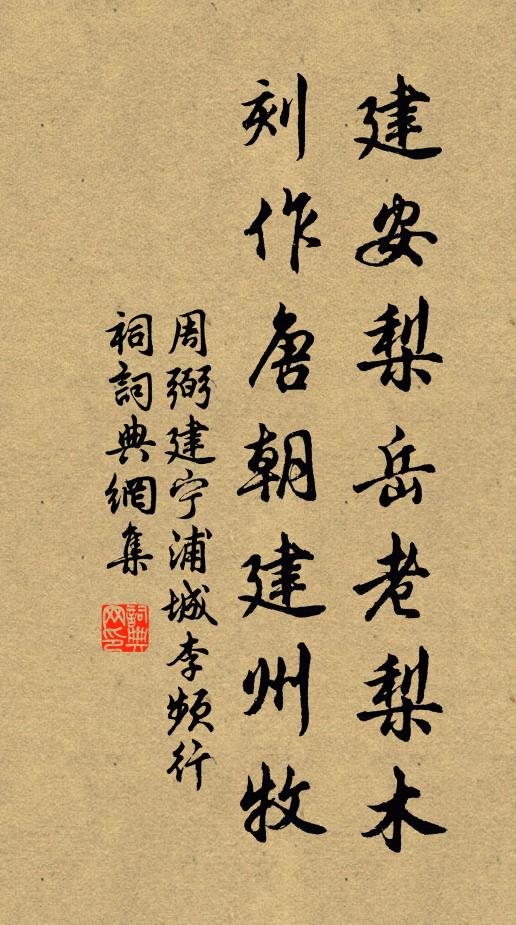 建安梨岳老梨木
刻作唐朝建州牧
周弼建宁浦城李頻行
祠詞典網集
詞典網印